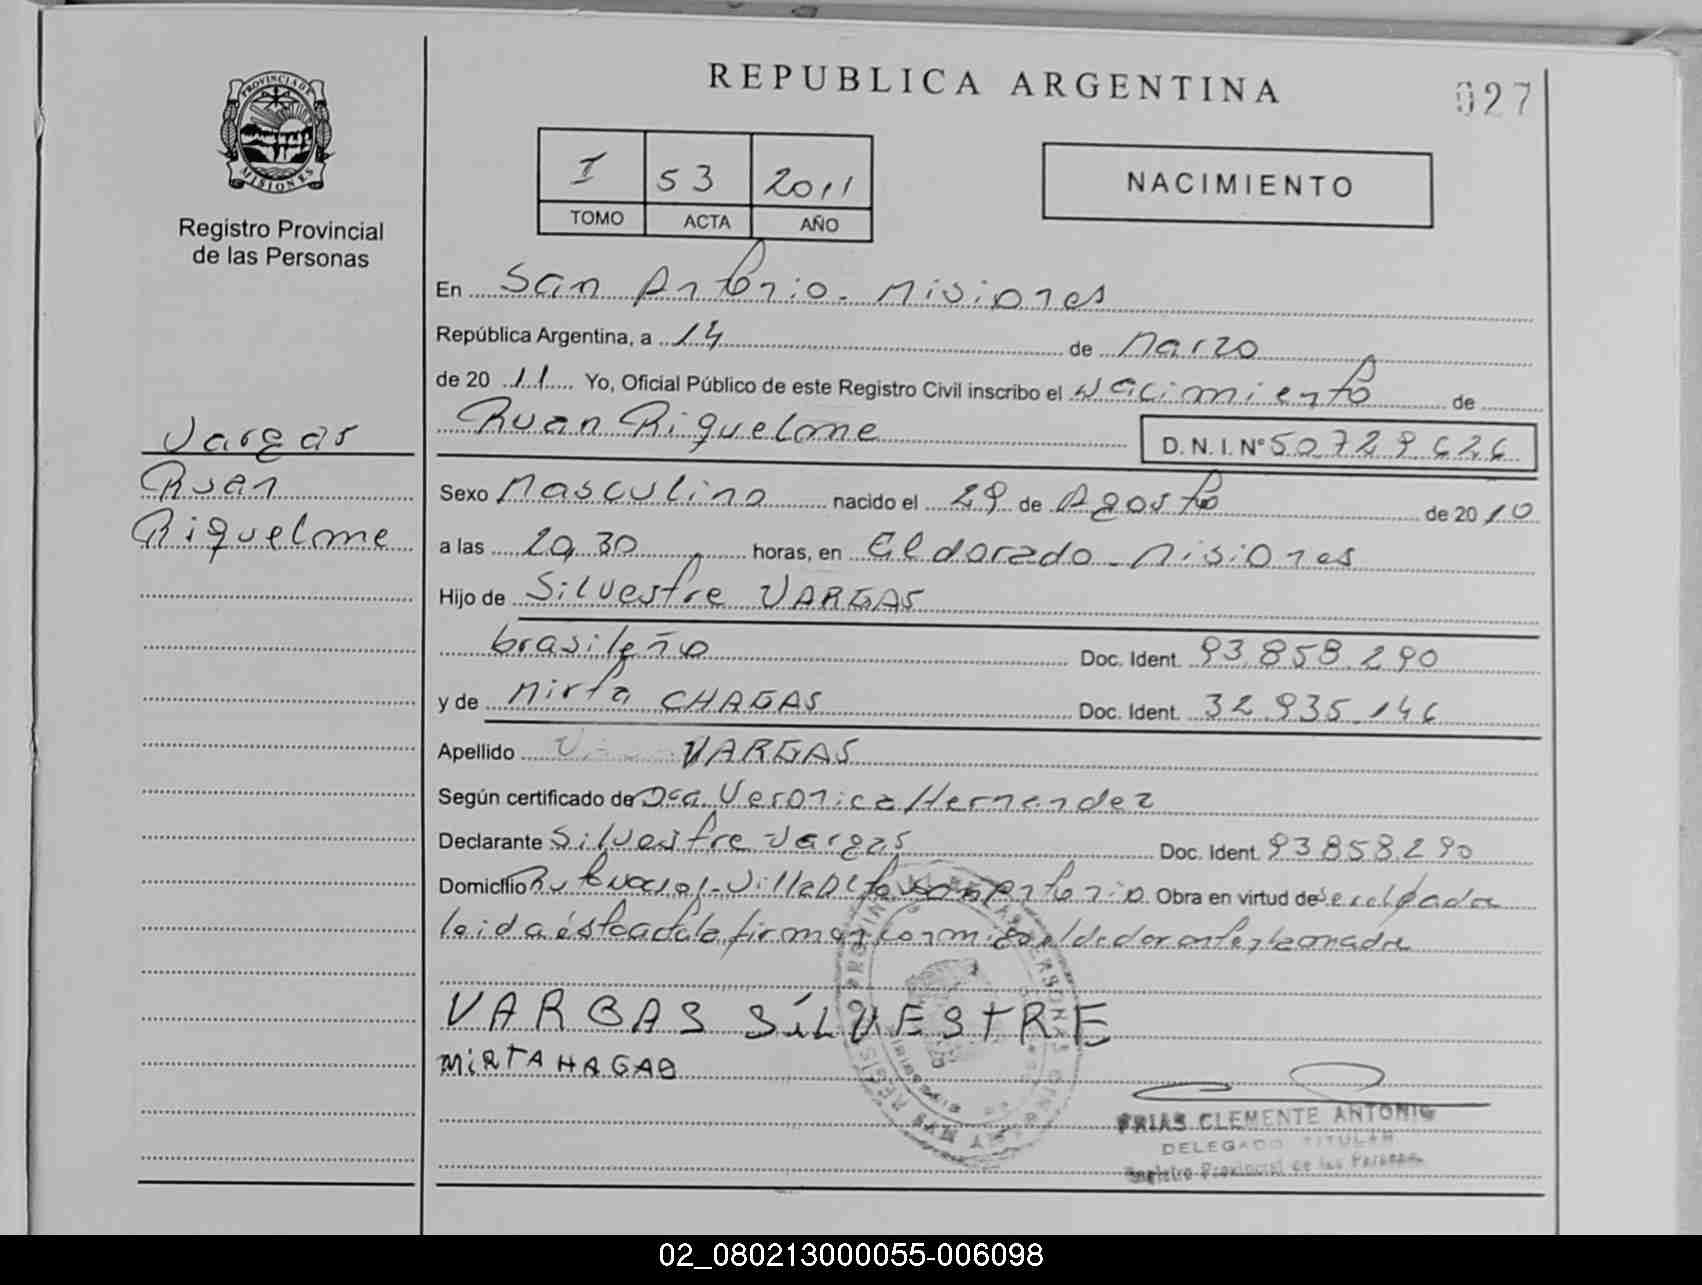 REPUBLICA ARGENTINA
027
PROVINCIA DE
MISIONES
Registro Provincial
de las Personas
I 53 2011
TOMO ACTA AÑO
NACIMIENTO
En San Antonio - Misiones
República Argentina, a 14 de Marzo
de 20 11 Yo, Oficial Público de este Registro Civil inscribo el Nacimiento de
Ruan Riquelme D. N. I. Nº 50.729.626
Vargas
Ruan
Riquelme
Sexo Masculino nacido el 29 de Agosto de 2010
a las 20,30 horas, en Eldorado - Misiones
Hijo de Silvestre VARGAS
brasileño Doc. Ident. 93.858.290
y de Mirta CHAGAS Doc. Ident. 32.935.146
Apellido VARGAS
Según certificado de Dra. Veronica Hernandez
Declarante Silvestre Vargas Doc. Ident. 93858290
Domicilio Obra en virtud de
leida ésta acta la firman conmigo el
VARGAS SíLVESTRE
MiRTA HAGAS
FRIAS CLEMENTE ANTONIO
DELEGADO TITULAR
Registro Provincial de las Personas
02_080213000055-006098